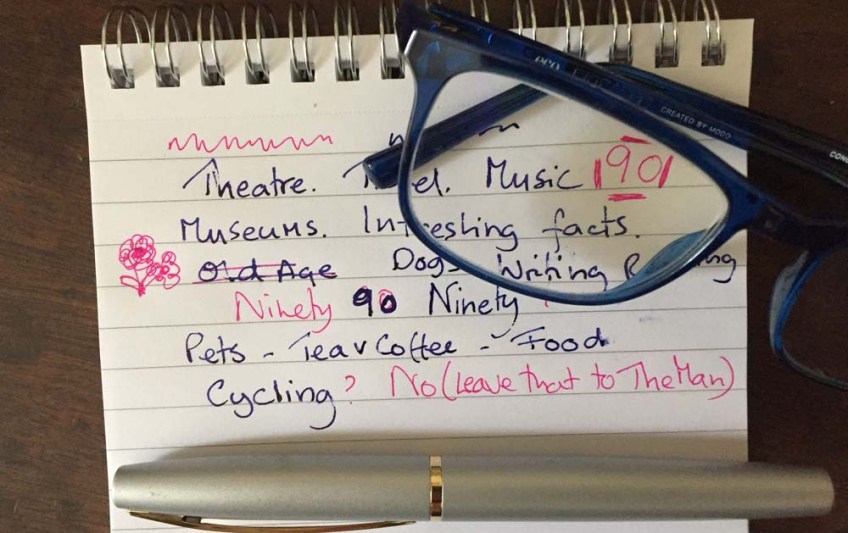 Theatre. Music 90
Museums. facts.
Old Age Dog Writing
Ninety 90 Ninety
Pets - Tea v Coffee - Food
Cycling? No (Leave that to The Man)
CREATED BY MODO